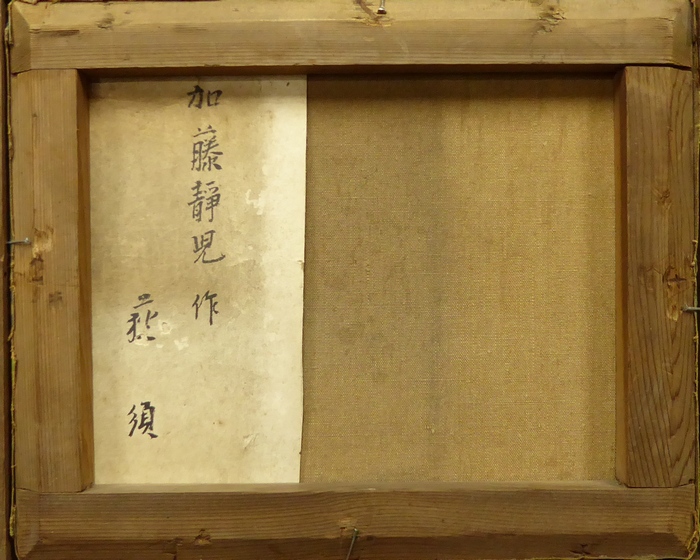 加藤靜児作
荻須